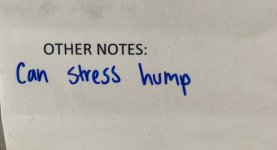 OTHER NOTES:
Can stress hump